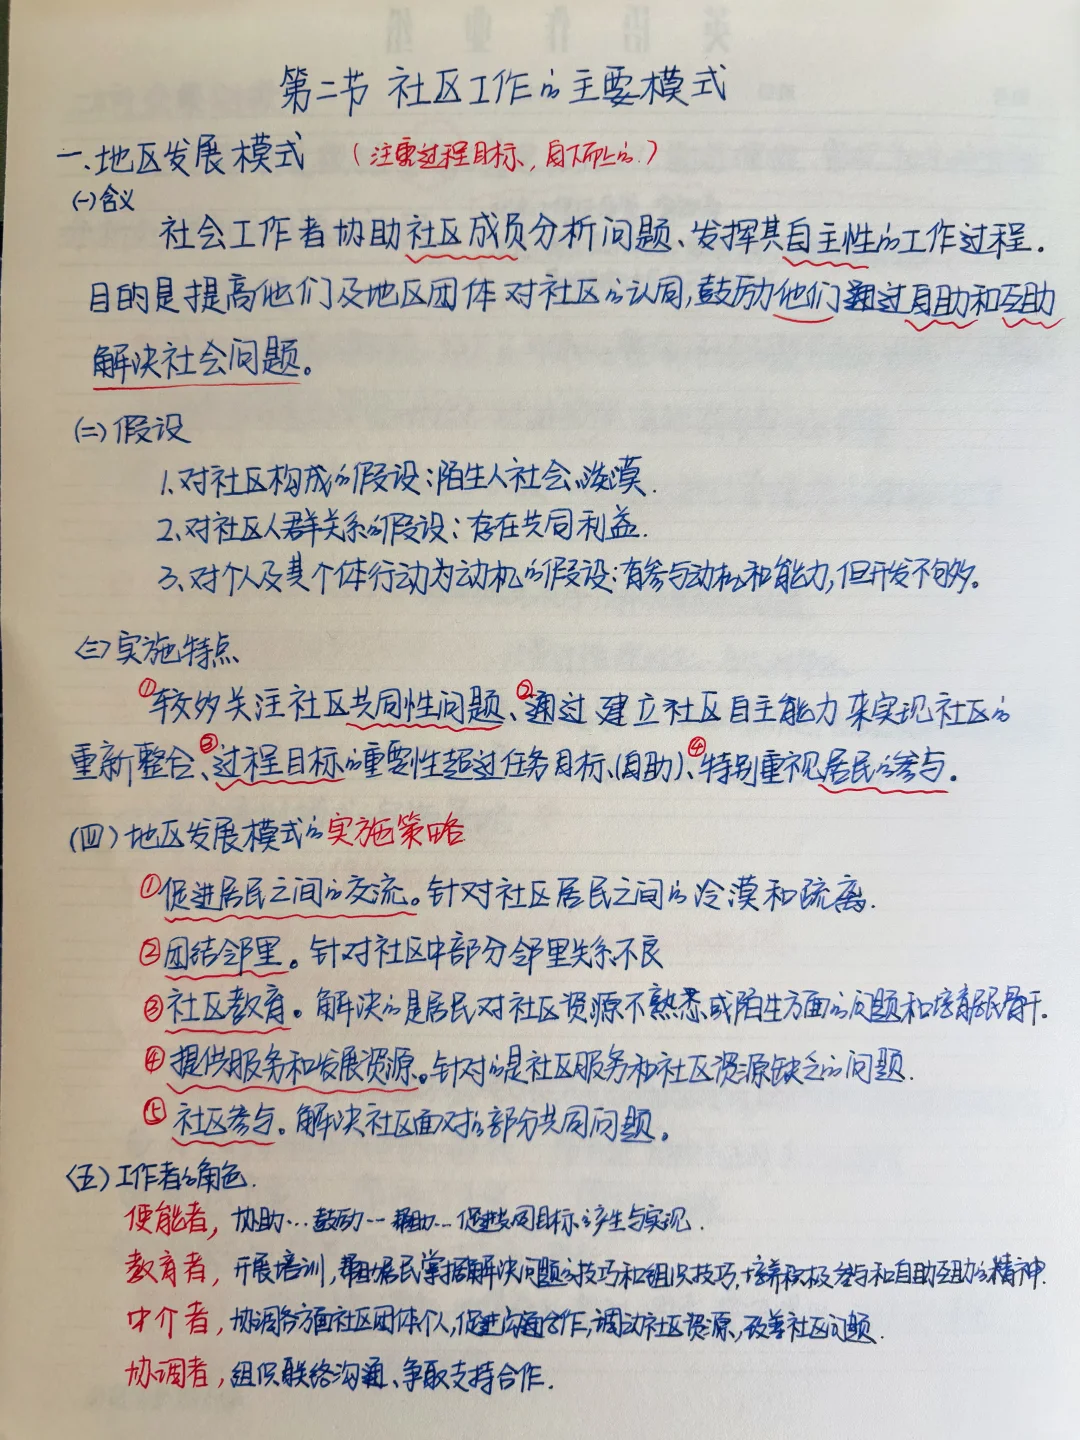 第二节 社区工作的主要模式
一、地区发展模式 (注重过程目标,自下而上的.)
(一)含义
社会工作者协助社区成员分析问题、发挥其自主性的工作过程.
目的是提高他们及地区团体对社区的认同,鼓励他们通过自助和互助
解决社会问题。
(二)假设
1.对社区构成的假设:陌生人社会,淡漠.
2.对社区人群关系的假设:存在共同利益.
3.对个人及其个体行动为动机的假设:有参与动机和能力,但开发不够多。
(三)实施特点
①较多关注社区共同性问题、②通过建立社区自主能力来实现社区的
重新整合、③过程目标的重要性超过任务目标、(自助)、④特别重视居民的参与.
(四)地区发展模式的实施策略
①促进居民之间的交流。针对社区居民之间的冷漠和疏离.
②团结邻里。针对社区中部分邻里关系不良
③社区教育。解决的是居民对社区资源不熟悉或陌生方面的问题和培育居民骨干.
④提供服务和发展资源。针对的是社区服务和社区资源缺乏的问题.
⑤社区参与。解决社区面对的部分共同问题。
(五)工作者的角色.
使能者,协助…鼓励…帮助…促进共同目标的产生与实现.
教育者,开展培训,帮助居民掌握解决问题的技巧和组织技巧,培养积极参与和自助互助的精神.
中介者,协调各方面社区团体个人,促进沟通合作,调动社区资源,改善社区问题.
协调者,组织联络沟通、争取支持合作.